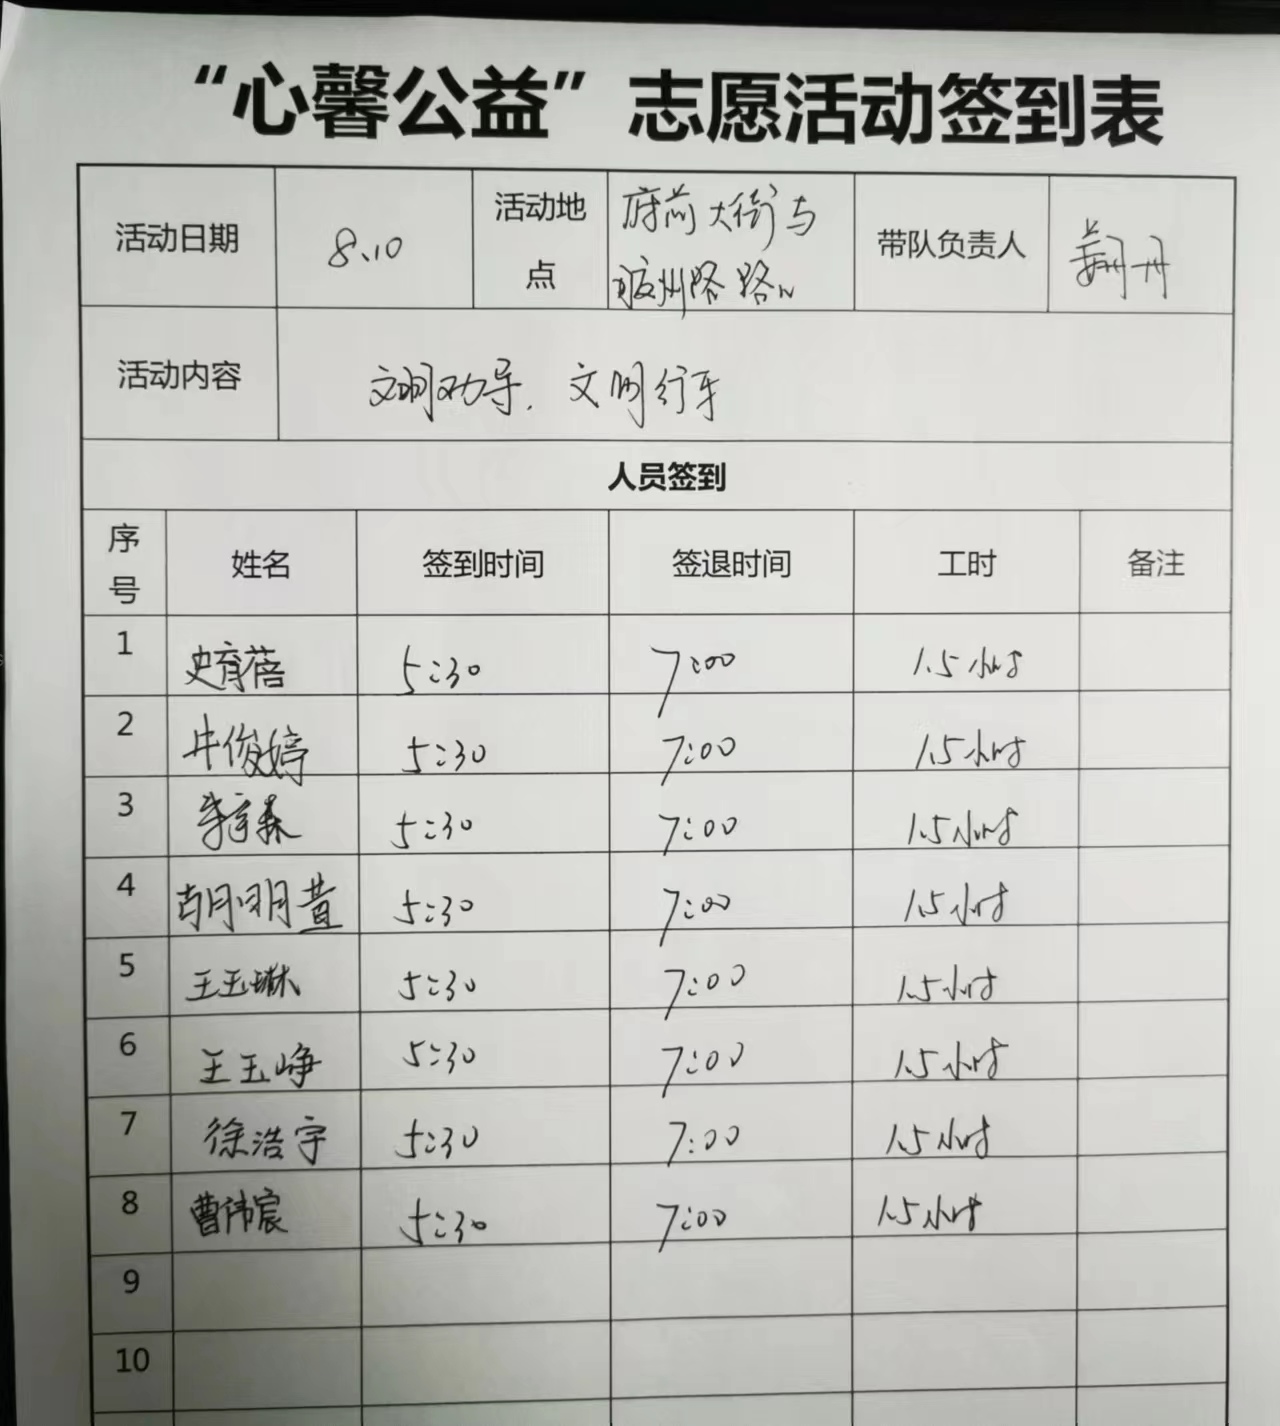 “心馨公益”志愿活动签到表
活动日期 8.10 活动地点 府前大街与胶州路路口 带队负责人
活动内容 文明劝导、文明行车
人员签到
序号 姓名 签到时间 签退时间 工时 备注
1 史育蓓 5:30 7:00 1.5小时
2 牛俊婷 5:30 7:00 1.5小时
3 5:30 7:00 1.5小时
4 胡明萱 5:30 7:00 1.5小时
5 王玉琳 5:30 7:00 1.5小时
6 王玉峥 5:30 7:00 1.5小时
7 徐浩宇 5:30 7:00 1.5小时
8 曹伟宸 5:30 7:00 1.5小时
9
10